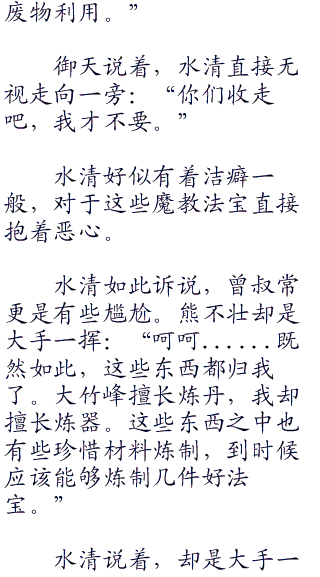 废物利用。”
御天说着，水清直接无
视走向一旁：“你们收走
吧，我才不要。”
水清好似有着洁癖一
般，对于这些魔教法宝直接
抱着恶心。
水清如此诉说，曾叔常
更是有些尴尬。熊不壮却是
大手一挥：“呵呵......既
然如此，这些东西都归我
了。大竹峰擅长炼丹，我却
擅长炼器。这些东西之中也
有些珍惜材料炼制，到时候
应该能够炼制几件好法
宝。”
水清说着，却是大手一